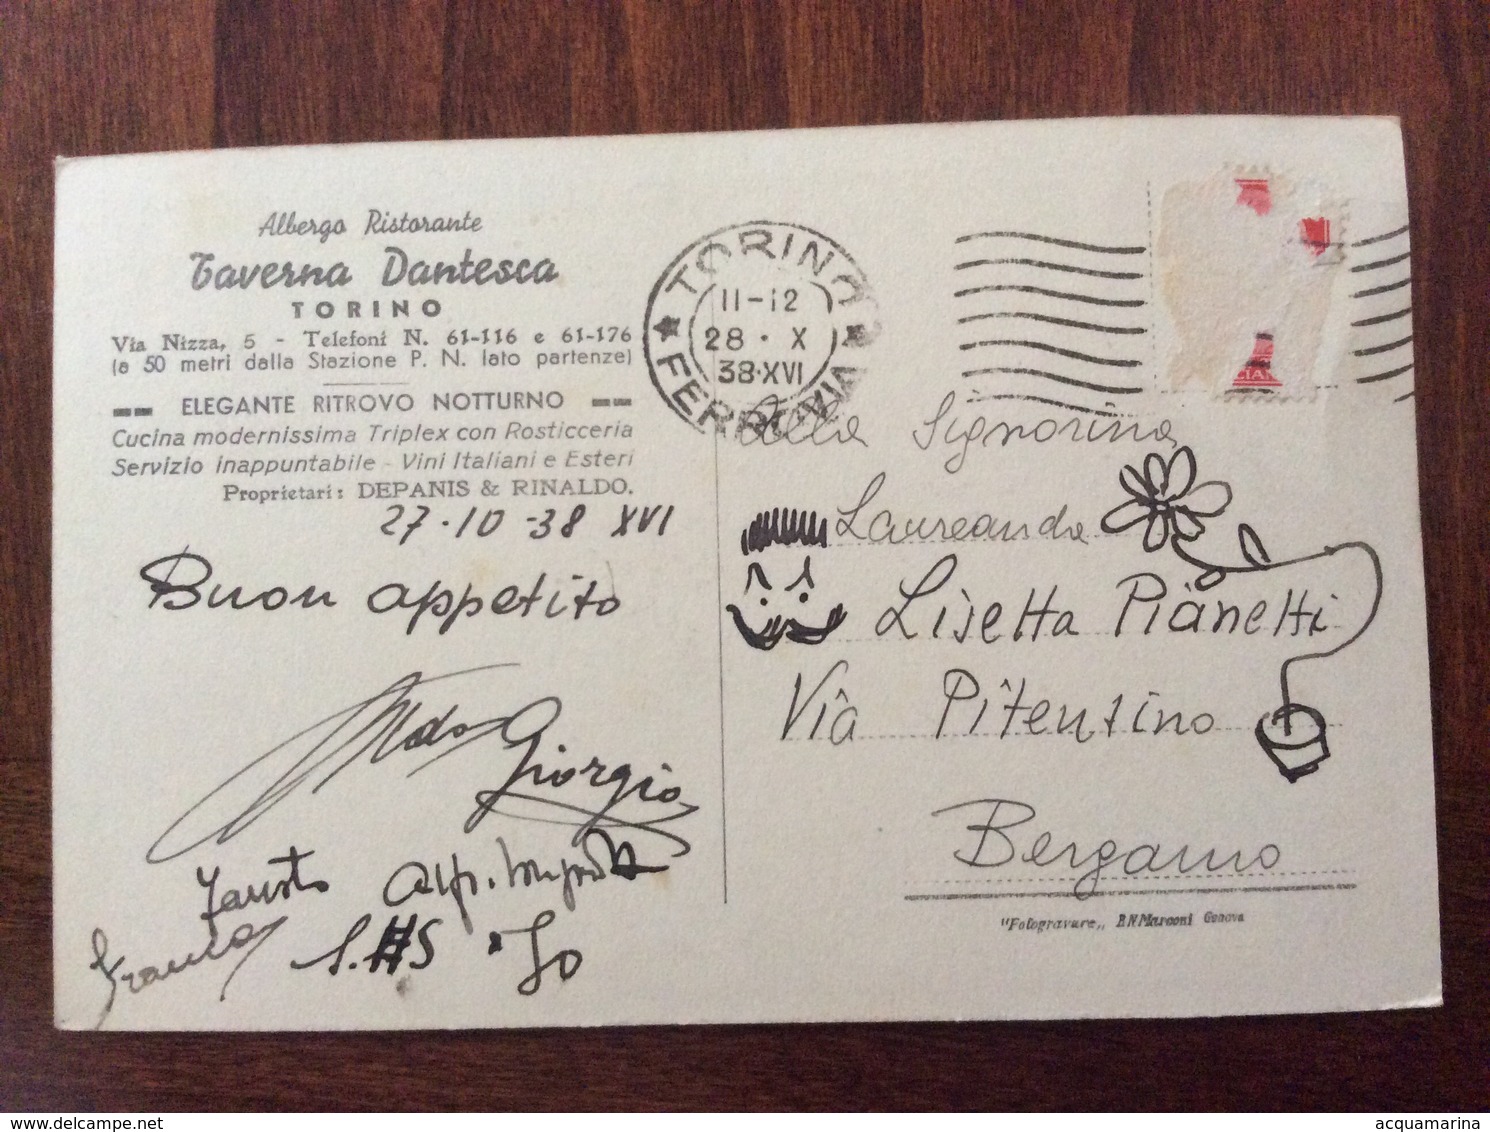 Albergo Ristorante
Taverna Dantesca
TORINO
Via Nizza, 5 - Telefoni N. 61-116 e 61-176
(a 50 metri dalla Stazione P. N. lato partenze)
ELEGANTE RITROVO NOTTURNO
Cucina modernissima Triplex con Rosticceria
Servizio inappuntabile - Vini Italiani e Esteri
Proprietari: DEPANIS & RINALDO.
27-10-38 XVI
Buon appetito
Aldo
Giorgio
Fausto
Franca
Io
TORINO
11-12
28 · X
38·XVI
FERROVIA
Alla Signorina
Laureanda
Lisetta Pianetti
Via Pitentino
Bergamo
"Fotogravure„ B.N Marconi Genova
acquamarina